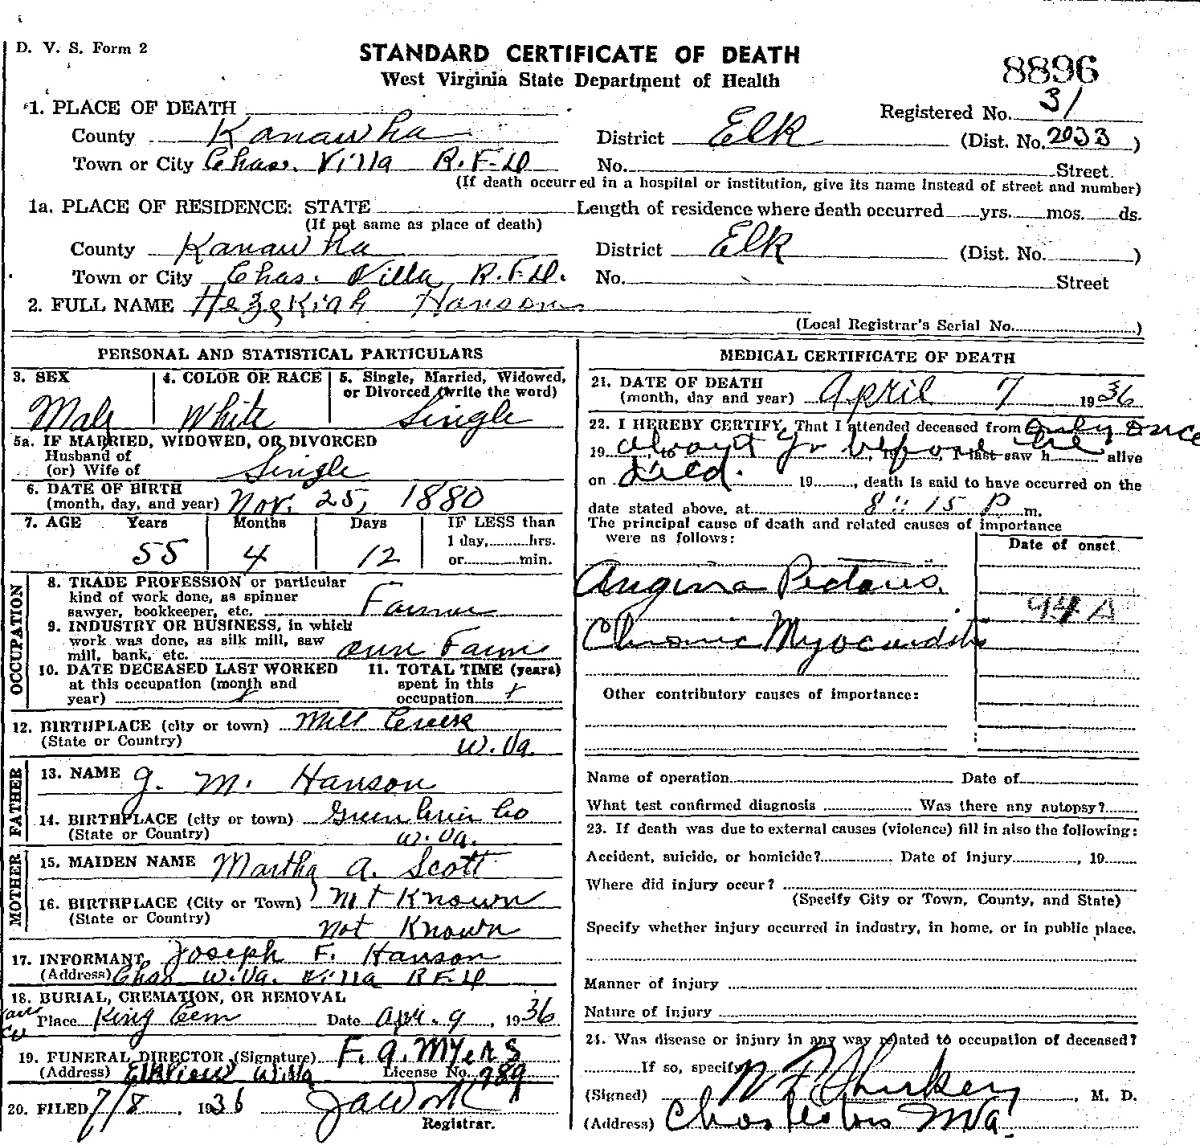 D. V. S. Form 2
STANDARD CERTIFICATE OF DEATH
West Virginia State Department of Health
8896
1. PLACE OF DEATH
Registered No. 31
County Kanawha District Elk (Dist. No. 2033)
Town or City Chas. Villa R.F.D. No. Street
(If death occurred in a hospital or institution, give its name instead of street and number)
1a. PLACE OF RESIDENCE: STATE Length of residence where death occurred yrs. mos. ds.
(If not same as place of death)
County Kanawha District Elk (Dist. No. )
Town or City Chas. Villa R.F.D. No. Street
2. FULL NAME Hezekiah Hanson
(Local Registrar's Serial No. )
PERSONAL AND STATISTICAL PARTICULARS
3. SEX 4. COLOR OR RACE 5. Single, Married, Widowed,
or Divorced (write the word)
Male White Single
5a. IF MARRIED, WIDOWED, OR DIVORCED
Husband of
(or) Wife of Single
6. DATE OF BIRTH
(month, day, and year) Nov. 25, 1880
7. AGE Years Months Days IF LESS than
1 day, hrs.
or min.
55 4 12
OCCUPATION
8. TRADE PROFESSION or particular
kind of work done, as spinner
sawyer, bookkeeper, etc. Farmer
9. INDUSTRY OR BUSINESS, in which
work was done, as silk mill, saw
mill, bank, etc. own Farm
10. DATE DECEASED LAST WORKED 11. TOTAL TIME (years)
at this occupation (month and spent in this
year) occupation
12. BIRTHPLACE (city or town) Mill Creek
(State or Country) W.Va.
FATHER
13. NAME G. M. Hanson
14. BIRTHPLACE (city or town) Green brier Co
(State or Country) W.Va.
MOTHER
15. MAIDEN NAME Martha A. Scott
16. BIRTHPLACE (City or Town) Not Known
(State or Country) Not Known
17. INFORMANT, Joseph F. Hanson
(Address) Chas W.Va. Villa R.F.D
18. BURIAL, CREMATION, OR REMOVAL
Place King Cem Date Apr. 9, 1936
19. FUNERAL DIRECTOR (Signature) F. A. Myers
(Address) Elkview W.Va License No. 989
20. FILED 7/8, 1936
Registrar.
MEDICAL CERTIFICATE OF DEATH
21. DATE OF DEATH
(month, day and year) April 7 1936
22. I HEREBY CERTIFY, That I attended deceased from Only Once
19 , to , 19 , I last saw h alive
about yr before he
on died. 19 , death is said to have occurred on the
date stated above, at 8:15 P m.
The principal cause of death and related causes of importance
were as follows:
Date of onset
Angina Pectoris.
94 A
Chronic Myocarditis
Other contributory causes of importance:
Name of operation Date of
What test confirmed diagnosis Was there any autopsy?
23. If death was due to external causes (violence) fill in also the following:
Accident, suicide, or homicide? Date of Injury , 19
Where did injury occur?
(Specify City or Town, County, and State)
Specify whether injury occurred in industry, in home, or in public place.
Manner of injury
Nature of injury
24. Was disease or injury in any way related to occupation of deceased?
If so, specify
(Signed) , M. D.
(Address) Charleston W Va.